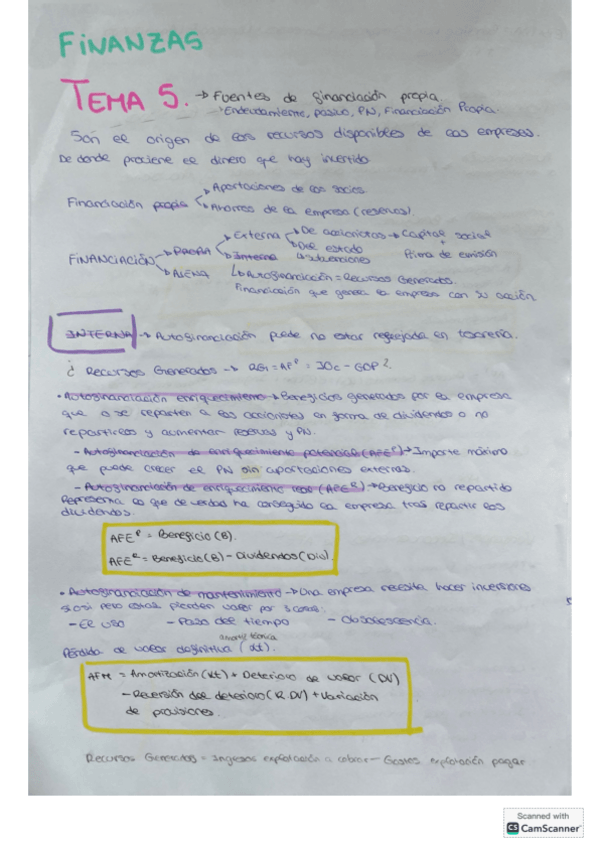 FINANZAS
TEMA 5. → Fuentes de financiación propia
Endeudamiento, pasivo, PN, Financiación Propia.
Son el origen de los recursos disponibles de las empresas.
De donde proviene el dinero que hay invertido
Financiación propia
Aportaciones de los socios
Ahorros de la empresa (reservas).
FINANCIACIÓN
PROPIA
AJENA
Externa
Interna
De accionistas → Capital social
+
Prima de emisión
Del estado
Subvenciones
Autofinanciación = Recursos Generados.
Financiación que genera la empresa con su acción
INTERNA → Autofinanciación puede no estar reflejada en tesorería.
¿ Recursos Generados → RG = AFP = IOC - GOP ?
· Autofinanciación enriquecimiento → Beneficios generados por la empresa
que o se reparten a los accionistas en forma de dividendos o no
repartirlos y aumentar reservas y PN.
- Autofinanciación de enriquecimiento potencial (AFEᴾ) → Importe máximo
que puede crecer el PN sin aportaciones externas.
- Autofinanciación de enriquecimiento real (AFEᴿ) → Beneficio no repartido
Representa lo que de verdad ha conseguido la empresa tras repartir los
dividendos.
AFEᴾ = Beneficio (B).
AFEᴿ = Beneficio (B) - Dividendos (Div).
· Autofinanciación de mantenimiento → Una empresa necesita hacer inversiones
pierden valor por 3 cosas:
- El uso - Paso del tiempo - Obsolescencia.
amort técnica
Pérdida de valor definitiva (At).
AFM = Amortización (At) + Deterioro de valor (DV)
- Reversión del deterioro (RDV) + Variación
de provisiones.
Recursos Generados = Ingresos explotación a cobrar - Gastos explotación pagar
Scanned with
CS CamScanner